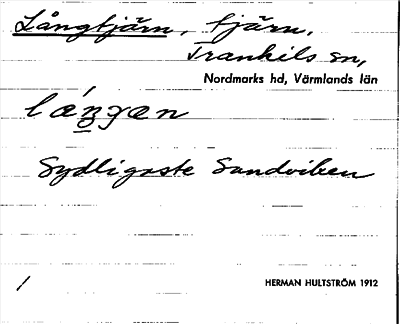 Långtjärn, tjärn.
Trankils sn,
Nordmarks hd, Värmlands län
Sydligaste Sandviken
/
HERMAN HULTSTRÖM 1912